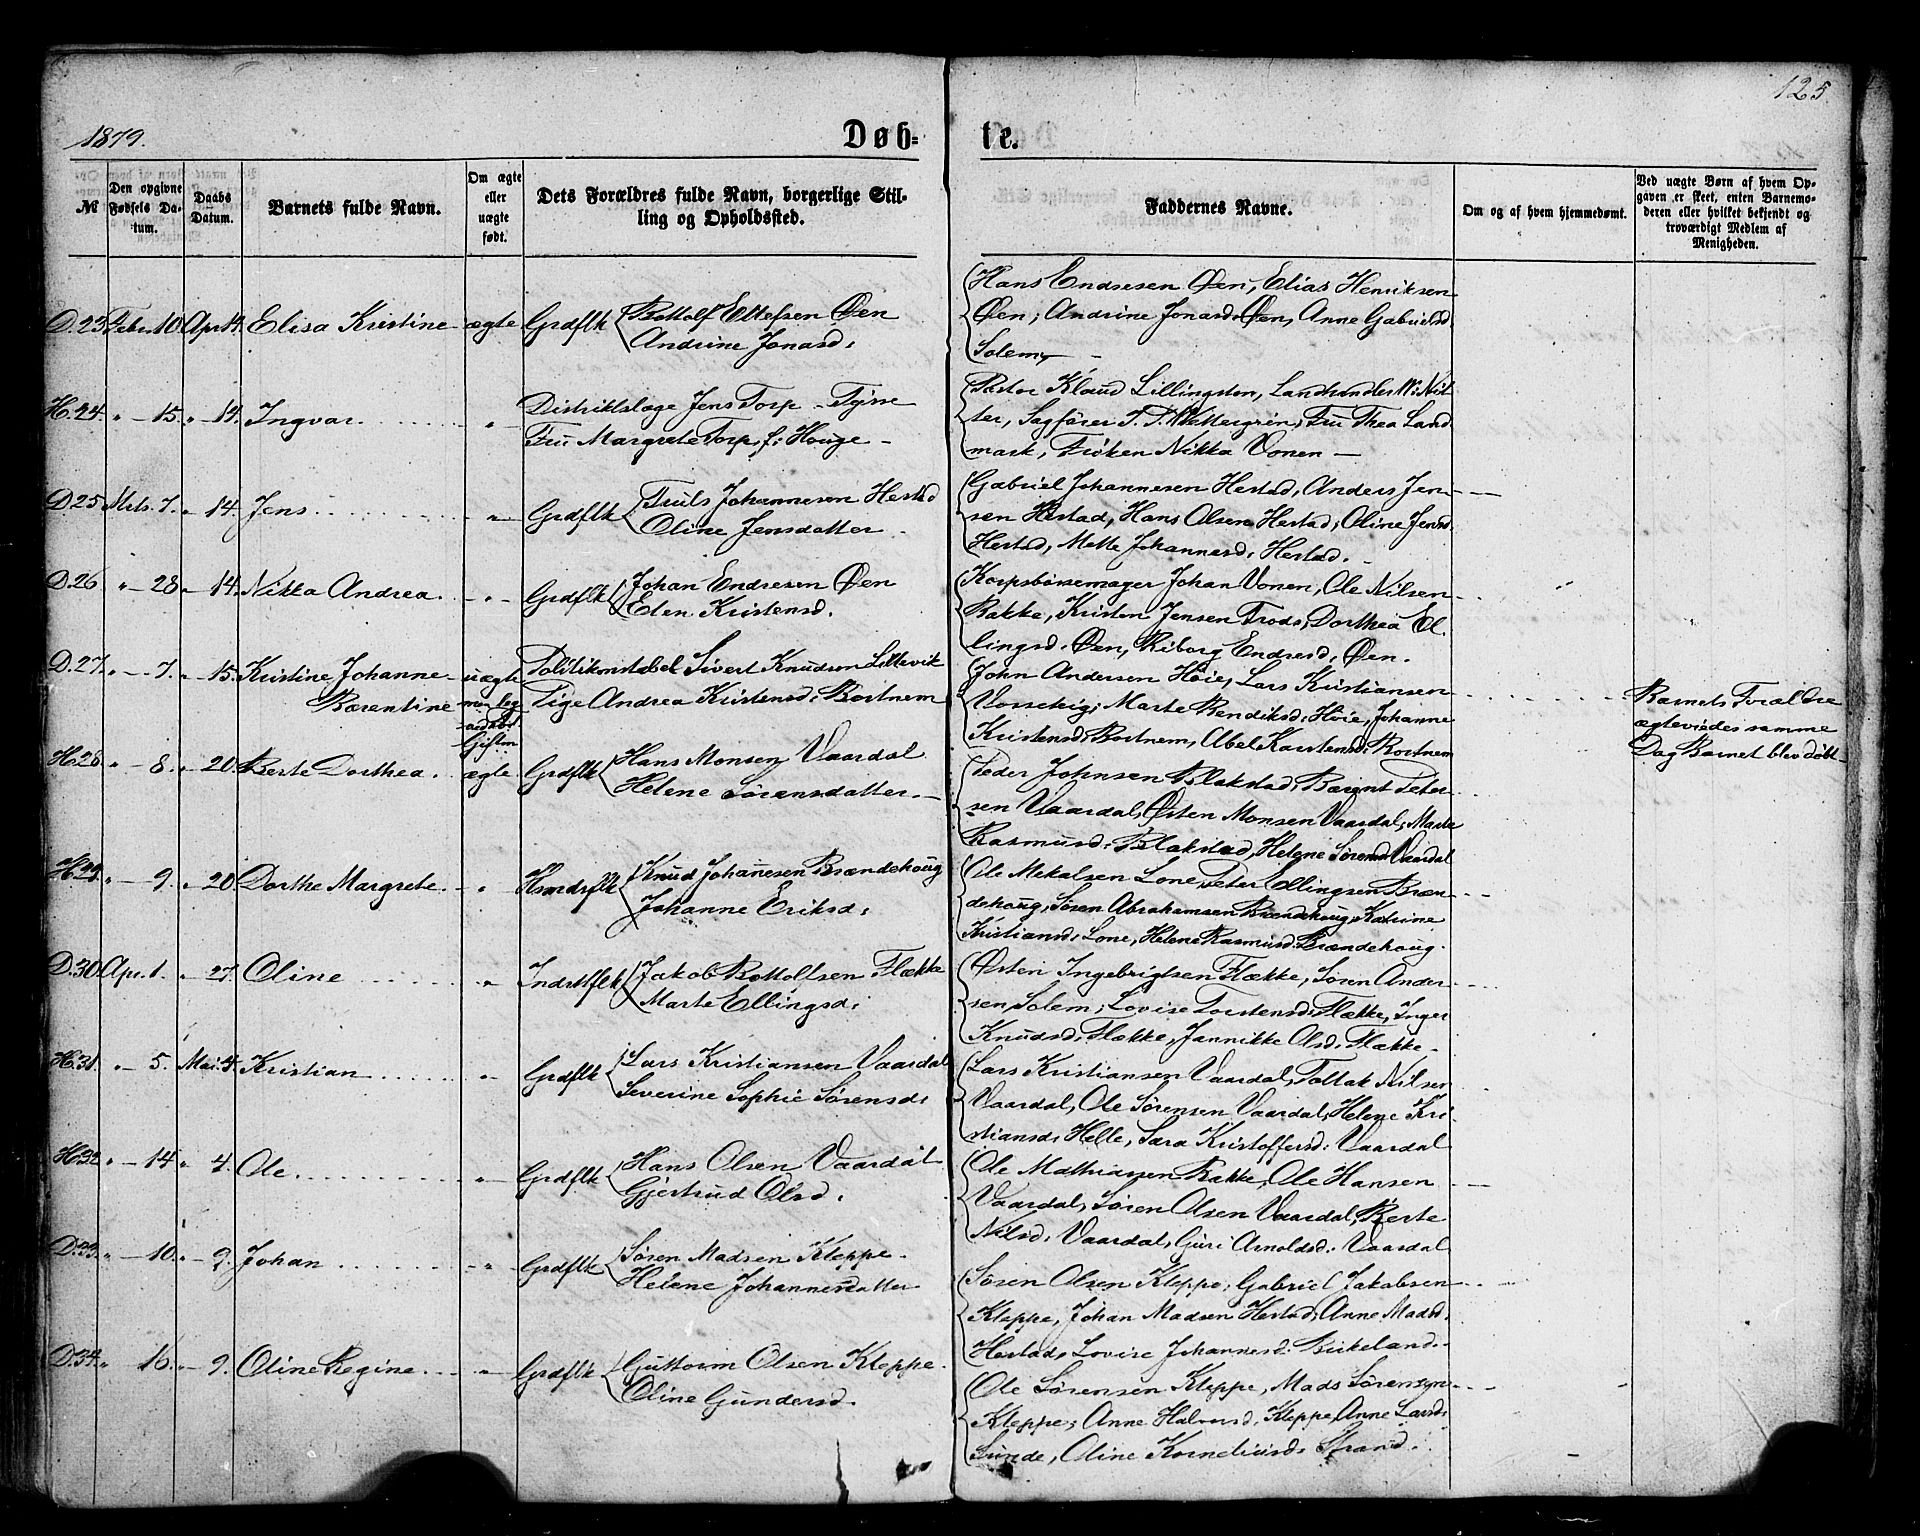 125.
1879.
Døb-
te.
№
Den opgivne Fødsels Da-tum.
Daabs Datum.
Barnets fulde Navn.
Om ægte eller uægte født.
Dets Forældres fulde Navn, borgerlige Stil-
ling og Opholdssted.
Faddernes Navne.
Om og af hvem hjemmedøbt.
Ved uægte Børn af hvem Op-
gaven er skeet, enten Barnemo-
deren eller hvilket bekjendt og
troværdigt Medlem af
Menigheden.
D. 23. Febr. 10. Apr. 14. Elisa Kristine ægte Grdflk Bottolf Ellefsen Øen
Andrine Jonasd:
Hans Endresen Øen, Elias Henriksen
Øen; Andrine Jonasd: Øen, Anne Gabrielsd
Solem, -
H. 24. " - 15. " 14. Ingvar " Distriktslæge Jens Torp - Tysse
Fru Margrete Torp, f: Houge -
Pastor Klaud Lillingston, Landhandler W:
ter, Sagfører T. T. Wettergren, Fru Thea Land
mark, Frøken Nikka Vonen -
D. 25 Mrts. 7. " 14. Jens " Grdflk Truls Johannesen Hestad
Oline Jensdatter
Gabriel Johannesen Hestad, Anders Jen-
sen Hestad, Hans Olsen Hestad, Oline Jensd
Hestad, Mette Johannesd: Hestad.
D. 26 " - 28 " 14. Nikka Andrea " Grdflk Johan Endresen Øen
Elen Kristensd.
Korpsbøssemager Johan Vonen, Ole Nilsen
Bakke, Kristen Jensen Trods, Dorthea El
lingsd. Øen, Riborg Endresd. Øen.
D. 27. " - 7. " 15. Kristine Johanne uægte Politikonstabel Sivert Knudsen Lillevik
Bærentine Pige Andrea Kristensd: Bortnem
John Andersen Høie, Lars Kristiansen
Marte Bendiksd: Høie, Johanne
Kristensd: Bortnem, Abel Karstensd: Bortnem
Barnets Forældre
ægteviedes samme
Dag Barnet blev døbt
H. 28 " - 8. " 20. Berte Dorthea. ægte Grdflk Hans Monsen Vaardal
Helene Sørensdatter. -
Peder Johnsen Blakstad, Barent Peter
sen Vaardal, Østen Monsen Vaardal, Marte
Rasmusd: Blakstad, Helene Sørensd Vaardal
H. 29. " - 9. " 20 Dorthe Margrete. " Hsmdsflk Knud Johanesen Brændehoug
Johanne Eriksd:
Ole Mekalsen Lone, Peter Ellingsen Bræn
dehoug, Søren Abrahamsen Brændehoug, Katrine
Kristiansd: Lone, Helene Rasmusd: Brændehoug.
D. 30. Apr. 1. " 27. Oline " Indstflk Jakob Bottolfsen Flække
Marte Ellingsd:
Østen Ingebrigtsen Flække, Søren Ander-
sen Solem; Lovise Torstensd: Flække, Inger
Knudsd: Flække, Jannikke Olsd: Flække.
H. 31. " - 5. Mai. 4. Kristian " Grdflk Lars Kristiansen Vaardal
Severine Sophie Sørensd:
Lars Kristiansen Vaardal, Tollak Nilsen
Vaardal, Ole Sørensen Vaardal, Helene Kri
stiansd: Helle, Sara Kristoffersd: Vaardal
H. 32 " - 14 " 4. Ole " Grdflk Hans Olsen Vaardal
Gjertrud Olsd:
Ole Mathiassen Bakke, Ole Hansen
Vaardal, Søren Olsen Vaardal, Berte
Nilsd. Vaardal, Guri Arnoldsd: Vaardal
D. 33. " - 10. " 9. Johan " Grdflk Søren Madsen Kleppe.
Helene Johannesdatter
Søren Olsen Kleppe; Gabriel Jakobsen
Kleppe, Johan Madsen Hestad; Anne Madsd:
Hestad, Lovise Johannesd: Birkeland.
D. 34. " 16. " 9. Oline Regine " Grdflk Guttorm Olsen Kleppe.
Oline Gundersd.
Ole Sørensen Kleppe, Mads Sørensen
Kleppe; Anne Halvorsd. Kleppe, Anne Larsd:
Sunde, Oline Korneliusd: Strand.